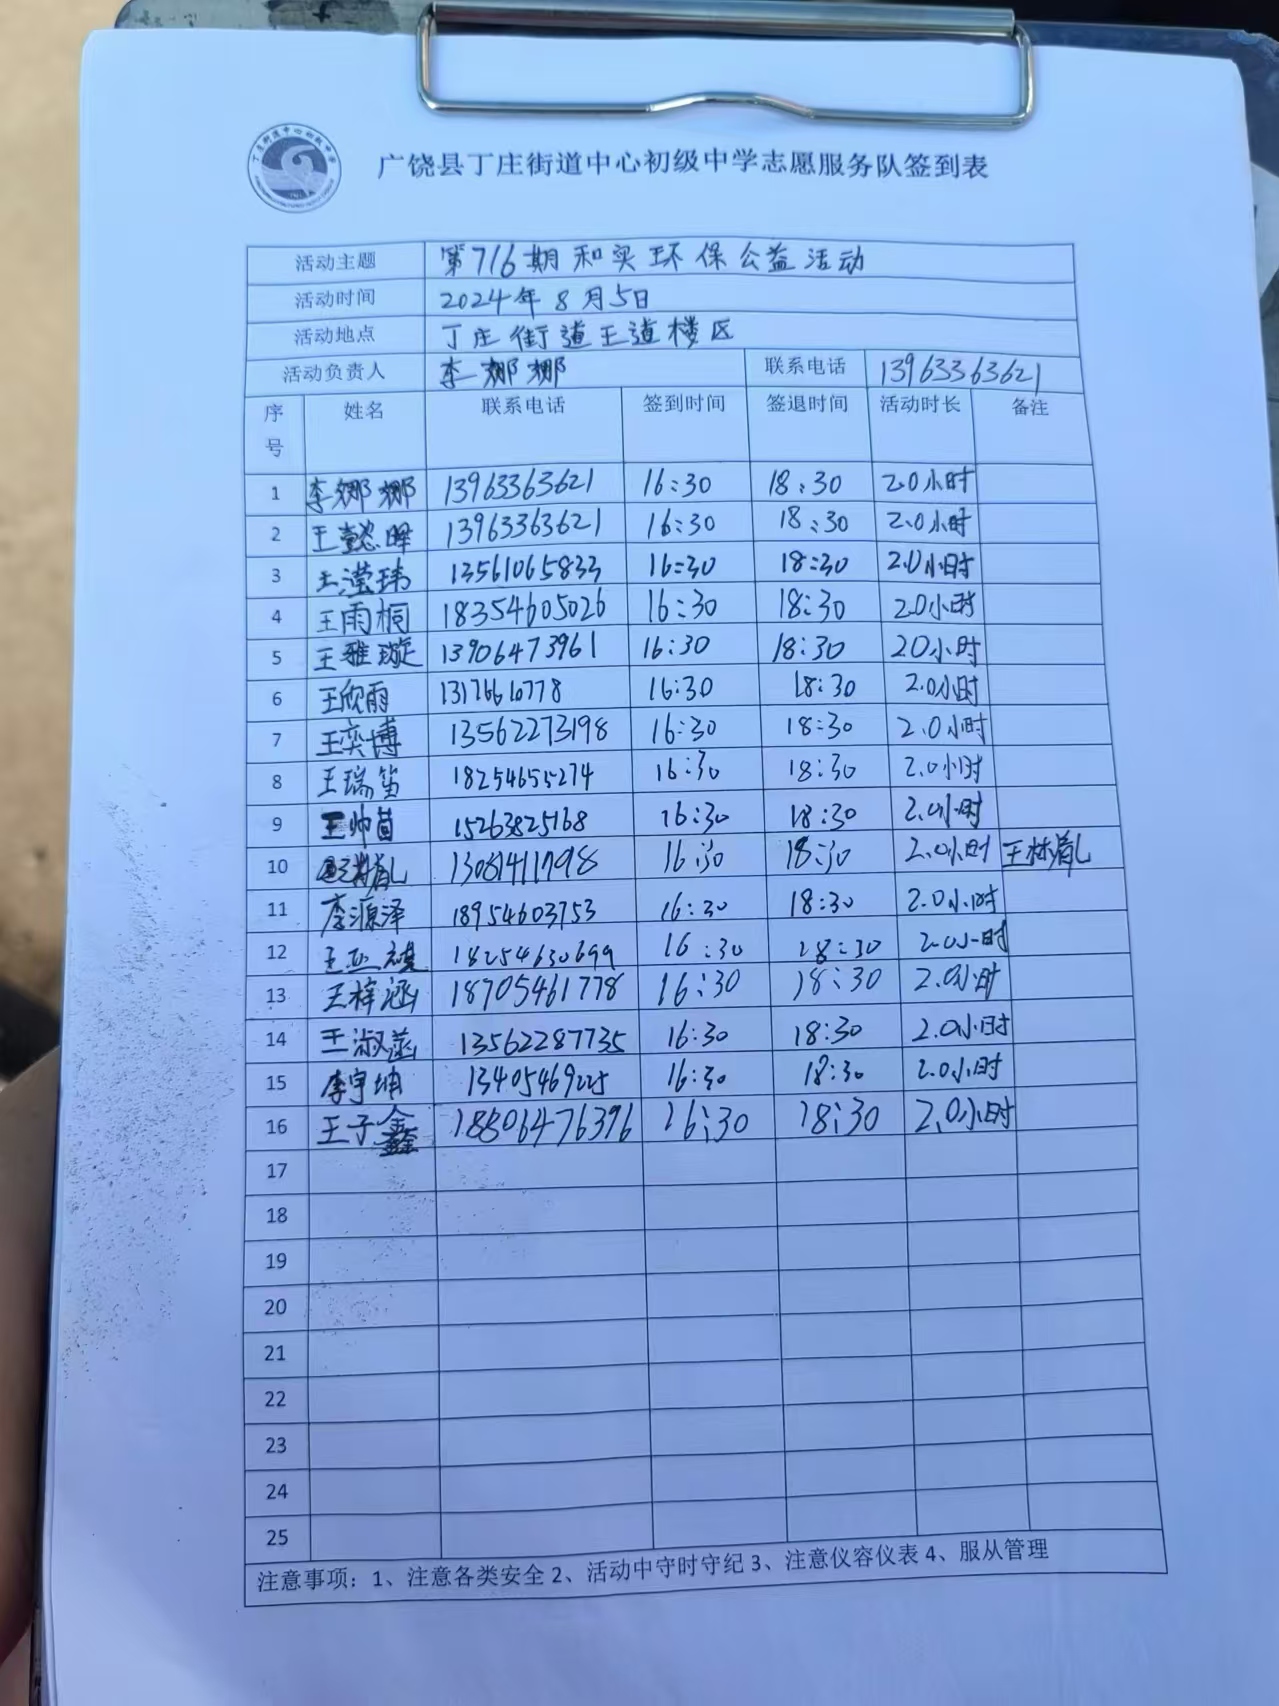 广饶县丁庄街道中心初级中学志愿服务队签到表
活动主题 第716期和实环保公益活动
活动时间 2024年8月5日
活动地点 丁庄街道王道楼区
活动负责人 李娜娜 联系电话 13963363621
序号 姓名 联系电话 签到时间 签退时间 活动时长 备注
1 李娜娜 13963363621 16:30 18:30 2.0小时
2 王懿晖 13963363621 16:30 18:30 2.0小时
3 王滢玮 13561065833 16:30 18:30 2.0小时
4 王雨桐 18354605026 16:30 18:30 2.0小时
5 王雅璇 13906473961 16:30 18:30 20小时
6 王欣雨 16:30 18:30 2.0小时
7 王奕博 13562273198 16:30 18:30 2.0小时
8 王瑞笛 18254655274 16:30 18:30 2.0小时
9 王帅苗 15263825168 16:30 18:30 2.0小时
10 16:30 18:30 2.0小时
11 李源泽 18954603753 16:30 18:30 2.0小时
12 18254630699 16:30 18:30 2.0小时
13 王梓涵 18705461778 16:30 18:30 2.0小时
14 王淑菡 13562287735 16:30 18:30 2.0小时
15 李宇坤 13405469225 16:30 18:30 2.0小时
16 王子鑫 18806476396 16:30 18:30 2.0小时
17
18
19
20
21
22
23
24
25
注意事项：1、注意各类安全 2、活动中守时守纪 3、注意仪容仪表 4、服从管理